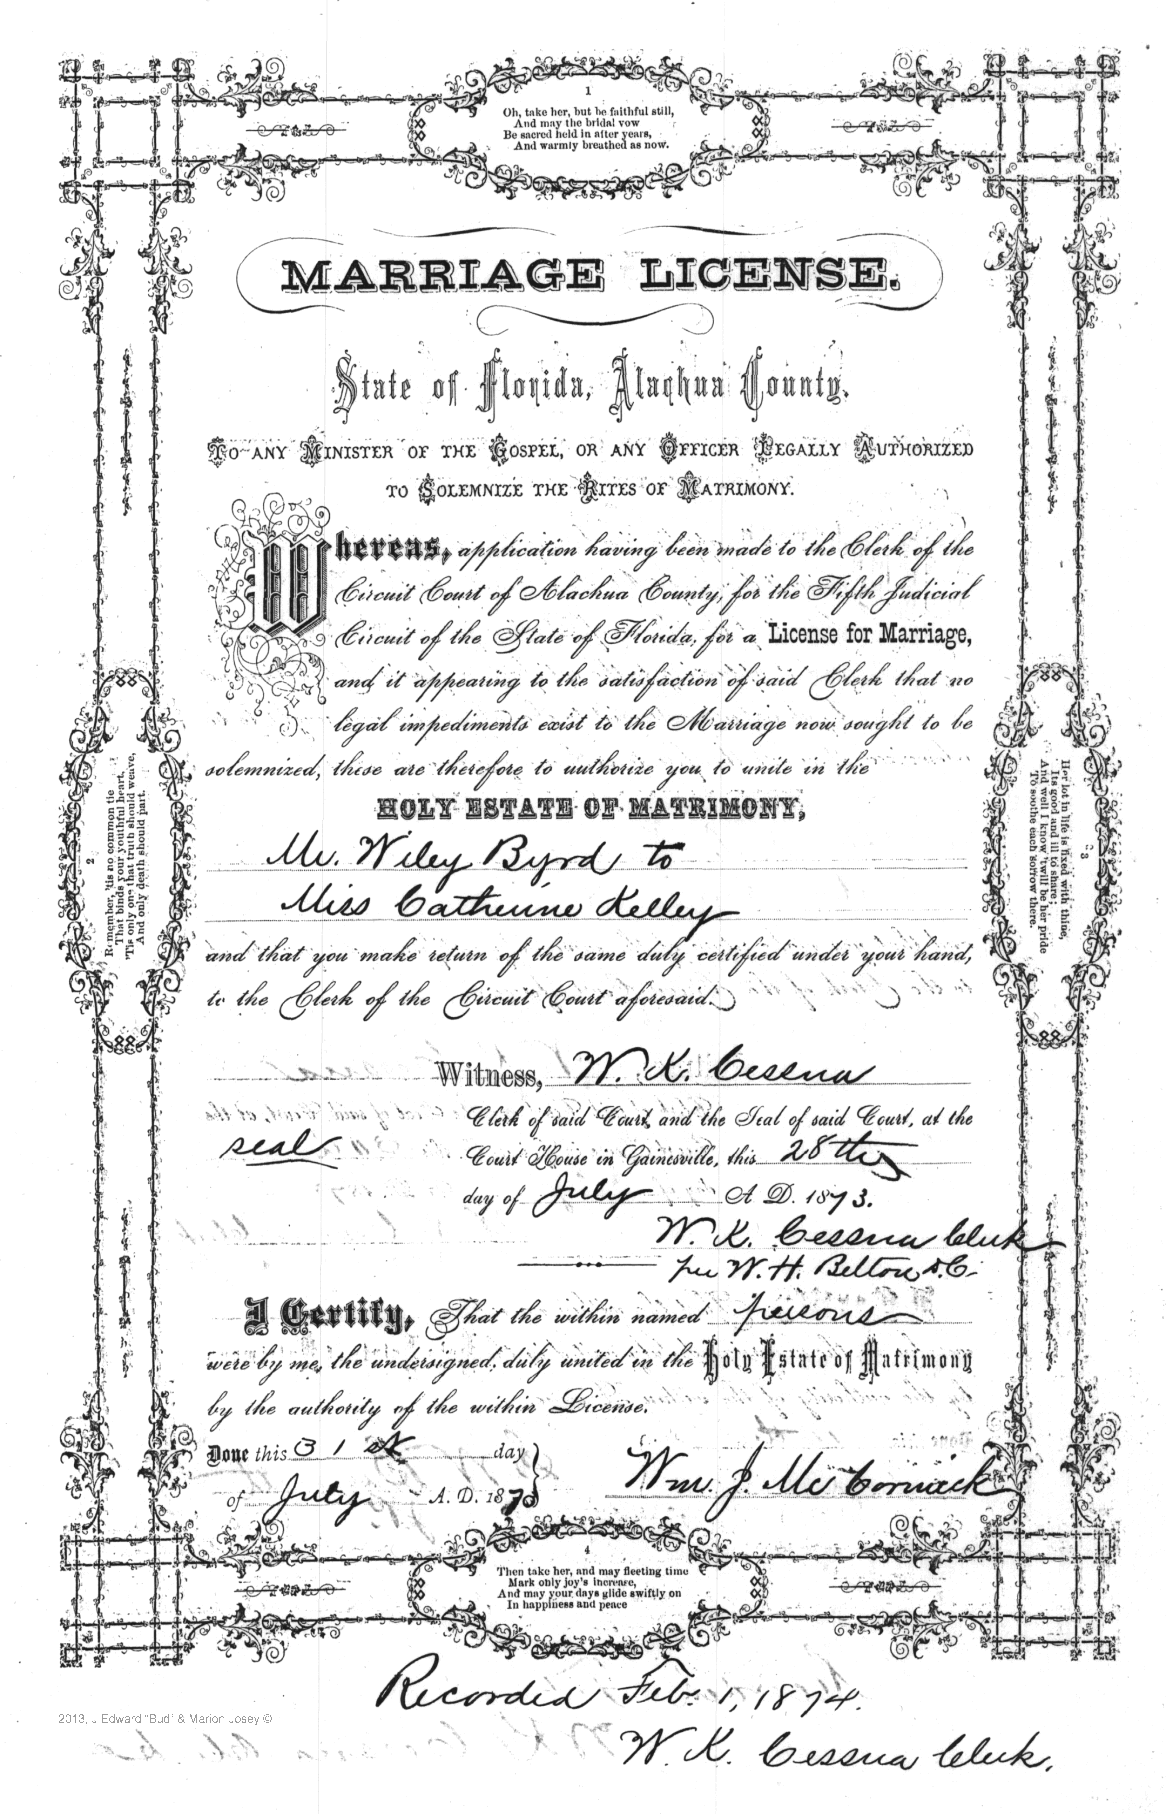 1
Oh, take her, but be faithful still,
And may the bridal vow
Be sacred held in after years,
And warmly breathed as now.
MARRIAGE LICENSE.
State of Florida, Alachua County.
TO ANY MINISTER OF THE GOSPEL, OR ANY OFFICER LEGALLY AUTHORIZED
TO SOLEMNIZE THE RITES OF MATRIMONY.
Whereas, application having been made to the Clerk of the
Circuit Court of Alachua County, for the Fifth Judicial
Circuit of the State of Florida, for a License for Marriage,
and it appearing to the satisfaction of said Clerk that no
legal impediments exist to the Marriage now sought to be
solemnized, these are therefore to authorize you to unite in the
HOLY ESTATE OF MATRIMONY,
Mr. Wiley Byrd to
Miss Catherine Kelley
and that you make return of the same duly certified under your hand,
to the Clerk of the Circuit Court aforesaid.
2
Remember, 'tis no common tie
That binds your youthful heart,
'Tis only one that truth should weave,
And only death should part.
3
Her lot in life is fixed with thine,
Its good and ill to share;
And well I know 'twill be her pride
To soothe each sorrow there.
Witness, W. K. Cessna
Clerk of said Court, and the Seal of said Court, at the
seal
Court House in Gainesville, this 28th
day of July A. D. 1873.
W. K. Cessna Clerk
per W. H. Belton D.C.
I Certify, That the within named persons
were by me, the undersigned, duly united in the Holy Estate of Matrimony
by the authority of the within License.
Done this 31st day
of July A. D. 1873
Wm. J. McCormick
4
Then take her, and may fleeting time
Mark only joy's increase,
And may your days glide swiftly on
In happiness and peace
Recorded Feb. 1, 1874.
W. K. Cessna Clerk.
2013, J Edward "Bud" & Marion Josey ©